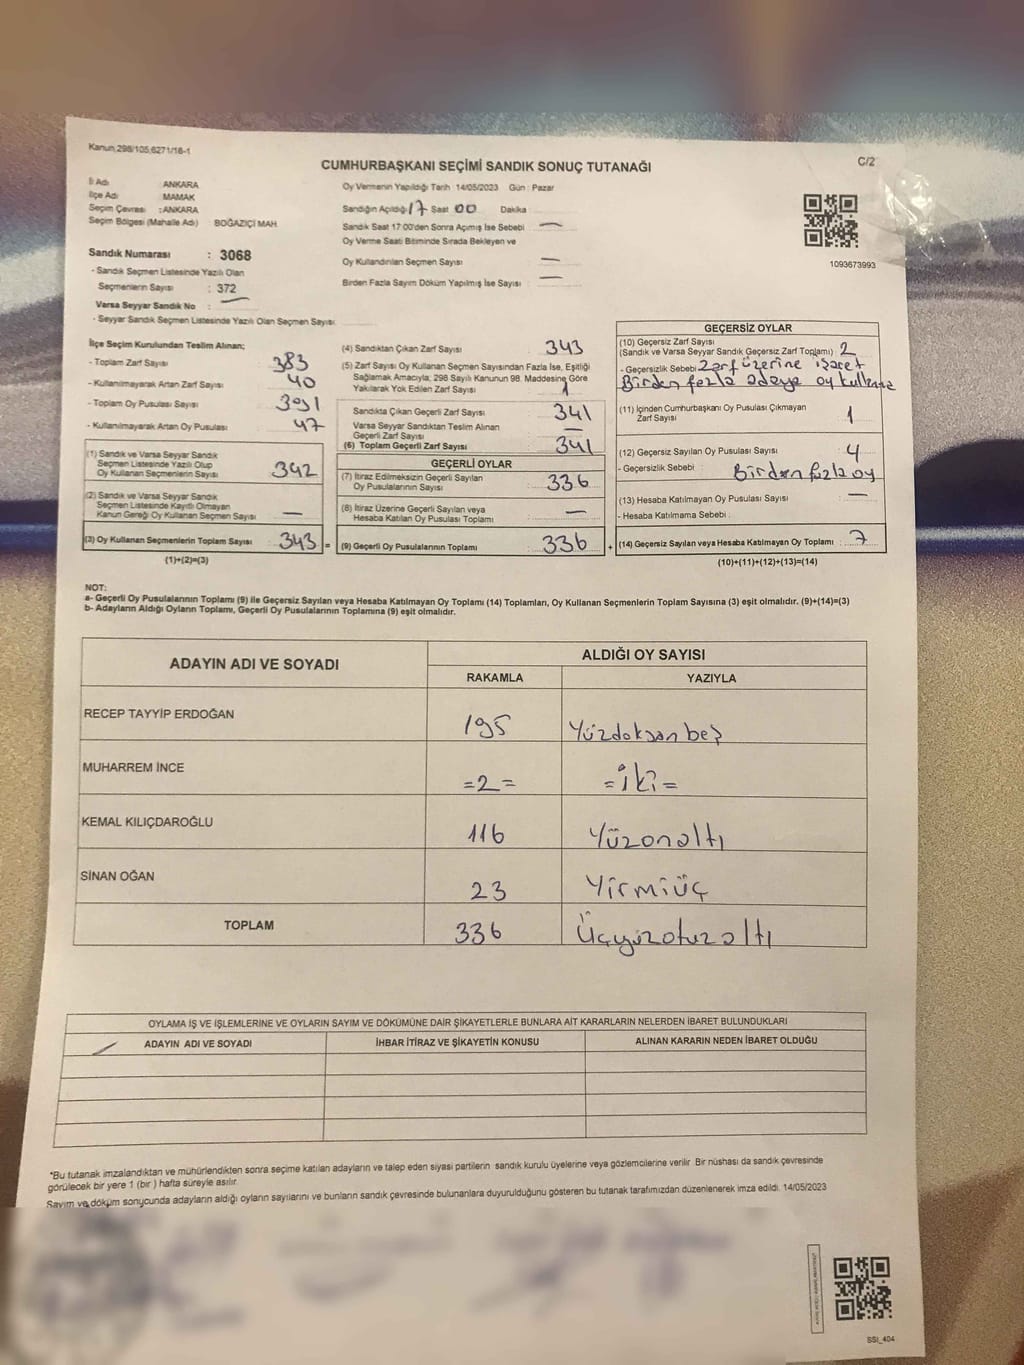 Kanun 298/105,6271/16-1
C/2
CUMHURBAŞKANI SEÇİMİ SANDIK SONUÇ TUTANAĞI
İl Adı ANKARA
İlçe Adı MAMAK
Seçim Çevresi : ANKARA
Seçim Bölgesi (Mahalle Adı) BOĞAZİÇİ MAH
Oy Vermenin Yapıldığı Tarih 14/05/2023 Gün : Pazar
Sandığın Açıldığı 17 Saat 00 Dakika
Sandık Saat 17:00'den Sonra Açılmış İse Sebebi —
Oy Verme Saati Bitiminde Sırada Bekleyen ve
Oy Kullandırılan Seçmen Sayısı —
Birden Fazla Sayım Döküm Yapılmış İse Sayısı —
1093673993
Sandık Numarası : 3068
- Sandık Seçmen Listesinde Yazılı Olan
Seçmenlerin Sayısı : 372
Varsa Seyyar Sandık No : —
- Seyyar Sandık Seçmen Listesinde Yazılı Olan Seçmen Sayısı:
İlçe Seçim Kurulundan Teslim Alınan;
- Toplam Zarf Sayısı 383
- Kullanılmayarak Artan Zarf Sayısı 40
- Toplam Oy Pusulası Sayısı 391
- Kullanılmayarak Artan Oy Pusulası 47
(1) Sandık ve Varsa Seyyar Sandık
Seçmen Listesinde Yazılı Olup
Oy Kullanan Seçmenlerin Sayısı 342
(2) Sandık ve Varsa Seyyar Sandık
Seçmen Listesinde Kayıtlı Olmayan
Kanun Gereği Oy Kullanan Seçmen Sayısı —
(3) Oy Kullanan Seçmenlerin Toplam Sayısı 343 =
(1)+(2)=(3)
(4) Sandıktan Çıkan Zarf Sayısı 343
(5) Zarf Sayısı Oy Kullanan Seçmen Sayısından Fazla İse, Eşitliği
Sağlamak Amacıyla; 298 Sayılı Kanunun 98. Maddesine Göre
Yakılarak Yok Edilen Zarf Sayısı 1
Sandıkta Çıkan Geçerli Zarf Sayısı 341
Varsa Seyyar Sandıktan Teslim Alınan
Geçerli Zarf Sayısı —
(6) Toplam Geçerli Zarf Sayısı 341
GEÇERLİ OYLAR
(7) İtiraz Edilmeksizin Geçerli Sayılan
Oy Pusulalarının Sayısı 336
(8) İtiraz Üzerine Geçerli Sayılan veya
Hesaba Katılan Oy Pusulası Toplamı —
(9) Geçerli Oy Pusulalarının Toplamı 336 +
GEÇERSİZ OYLAR
(10) Geçersiz Zarf Sayısı
(Sandık ve Varsa Seyyar Sandık Geçersiz Zarf Toplamı) 2
- Geçersizlik Sebebi Zarf üzerine işaret
Birden fazla adaya oy kullanma
(11) İçinden Cumhurbaşkanı Oy Pusulası Çıkmayan
Zarf Sayısı 1
(12) Geçersiz Sayılan Oy Pusulası Sayısı 4
- Geçersizlik Sebebi : Birden fazla oy
(13) Hesaba Katılmayan Oy Pusulası Sayısı —
- Hesaba Katılmama Sebebi :
(14) Geçersiz Sayılan veya Hesaba Katılmayan Oy Toplamı : 7
(10)+(11)+(12)+(13)=(14)
NOT:
a- Geçerli Oy Pusulalarının Toplamı (9) ile Geçersiz Sayılan veya Hesaba Katılmayan Oy Toplamı (14) Toplamları, Oy Kullanan Seçmenlerin Toplam Sayısına (3) eşit olmalıdır. (9)+(14)=(3)
b- Adayların Aldığı Oyların Toplamı, Geçerli Oy Pusulalarının Toplamına (9) eşit olmalıdır.
ADAYIN ADI VE SOYADI
ALDIĞI OY SAYISI
RAKAMLA YAZIYLA
RECEP TAYYİP ERDOĞAN 195 Yüzdoksan beş
MUHARREM İNCE =2= =iki=
KEMAL KILIÇDAROĞLU 116 Yüzonaltı
SİNAN OĞAN 23 Yirmiüç
TOPLAM 336 Üçyüzotuzaltı
OYLAMA İŞ VE İŞLEMLERİNE VE OYLARIN SAYIM VE DÖKÜMÜNE DAİR ŞİKAYETLERLE BUNLARA AİT KARARLARIN NELERDEN İBARET BULUNDUKLARI
ADAYIN ADI VE SOYADI İHBAR İTİRAZ VE ŞİKAYETİN KONUSU ALINAN KARARIN NEDEN İBARET OLDUĞU
*Bu tutanak imzalandıktan ve mühürlendikten sonra seçime katılan adayların ve talep eden siyasi partilerin sandık kurulu üyelerine veya gözlemcilerine verilir. Bir nüshası da sandık çevresinde
görülecek bir yere 1 (bir ) hafta süreyle asılır.
Sayım ve döküm sonucunda adayların aldığı oyların sayılarını ve bunların sandık çevresinde bulunanlara duyurulduğunu gösteren bu tutanak tarafımızdan düzenlenerek imza edildi. 14/05/2023
SSI_404